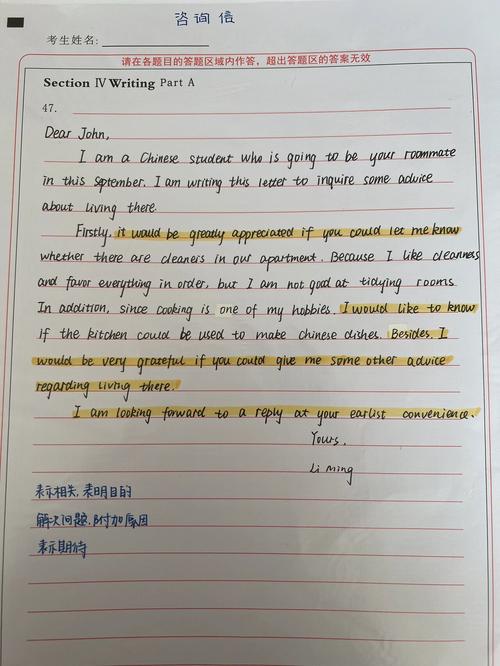 咨询信
考生姓名:
请在各题目的答题区域内作答，超出答题区的答案无效
Section Ⅳ Writing Part A
47.
Dear John,
I am a Chinese student who is going to be your roommate
in this september. I am writing this letter to inquire some advice
about living there.
Firstly, it would be greatly appreciated if you could let me know
whether there are cleaners in our apartment. Because I like cleanness
and favor everything in order, but I am not good at tidying rooms.
In addition, since cooking is one of my hobbies. I would like to know
if the kitchen could be used to make chinese dishes. Besides, I
would be very grateful if you could give me some other advice
regarding living there.
I am looking forward to a reply at your earlist convenience.
Yours,
Li Ming
表示相关,表明目的
解决问题,附加原因
表示期待